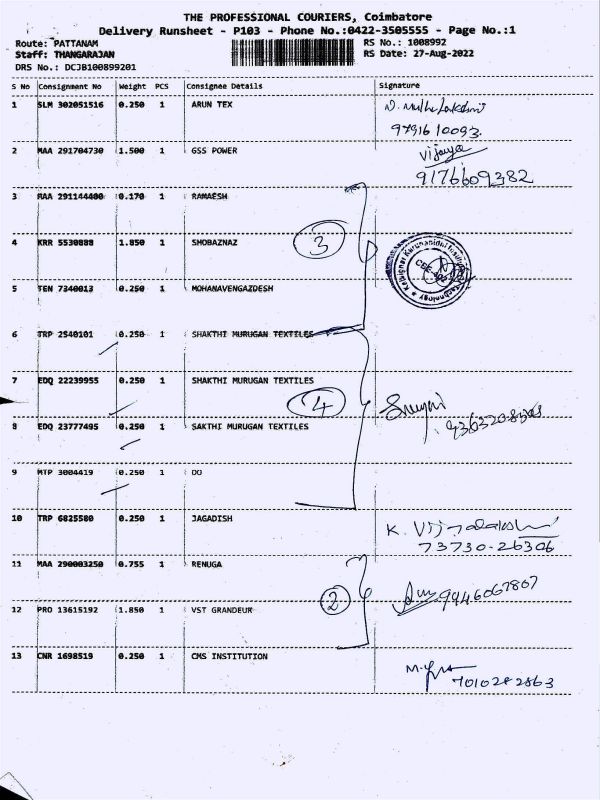 THE PROFESSIONAL COURIERS, Coimbatore
Delivery Runsheet - P103 - Phone No.:0422-3505555 - Page No.:1
Route: PATTANAM RS No.: 1008992
Staff: THANGARAJAN RS Date: 27-Aug-2022
DRS No.: DCJB100899201
S No Consignment No Weight PCS Consignee Details Signature
1 SLM 302051516 0.250 1 ARUN TEX
9791610093.
2 MAA 291704730 1.500 1 GSS POWER Vijaya
9176609382
3 MAA 291144400 0.170 1 RAMAESH
4 KRR 5530888 1.850 1 SHOBAZNAZ 3
5 TEN 7340013 0.250 1 MOHANAVENGAZDESH
6 TRP 2540101 0.250 1 SHAKTHI MURUGAN TEXTILES
7 EDQ 22239955 0.250 1 SHAKTHI MURUGAN TEXTILES
4
8 EDQ 23777495 0.250 1 SAKTHI MURUGAN TEXTILES
9 MTP 3004419 0.250 1 DO
10 TRP 6825580 0.250 1 JAGADISH K. Vijayalakshmi
73730-26306
11 MAA 290003250 0.755 1 RENUGA
2 9446067867
12 PRO 13615192 1.850 1 VST GRANDEUR
13 CNR 1698519 0.250 1 CMS INSTITUTION
7010282863